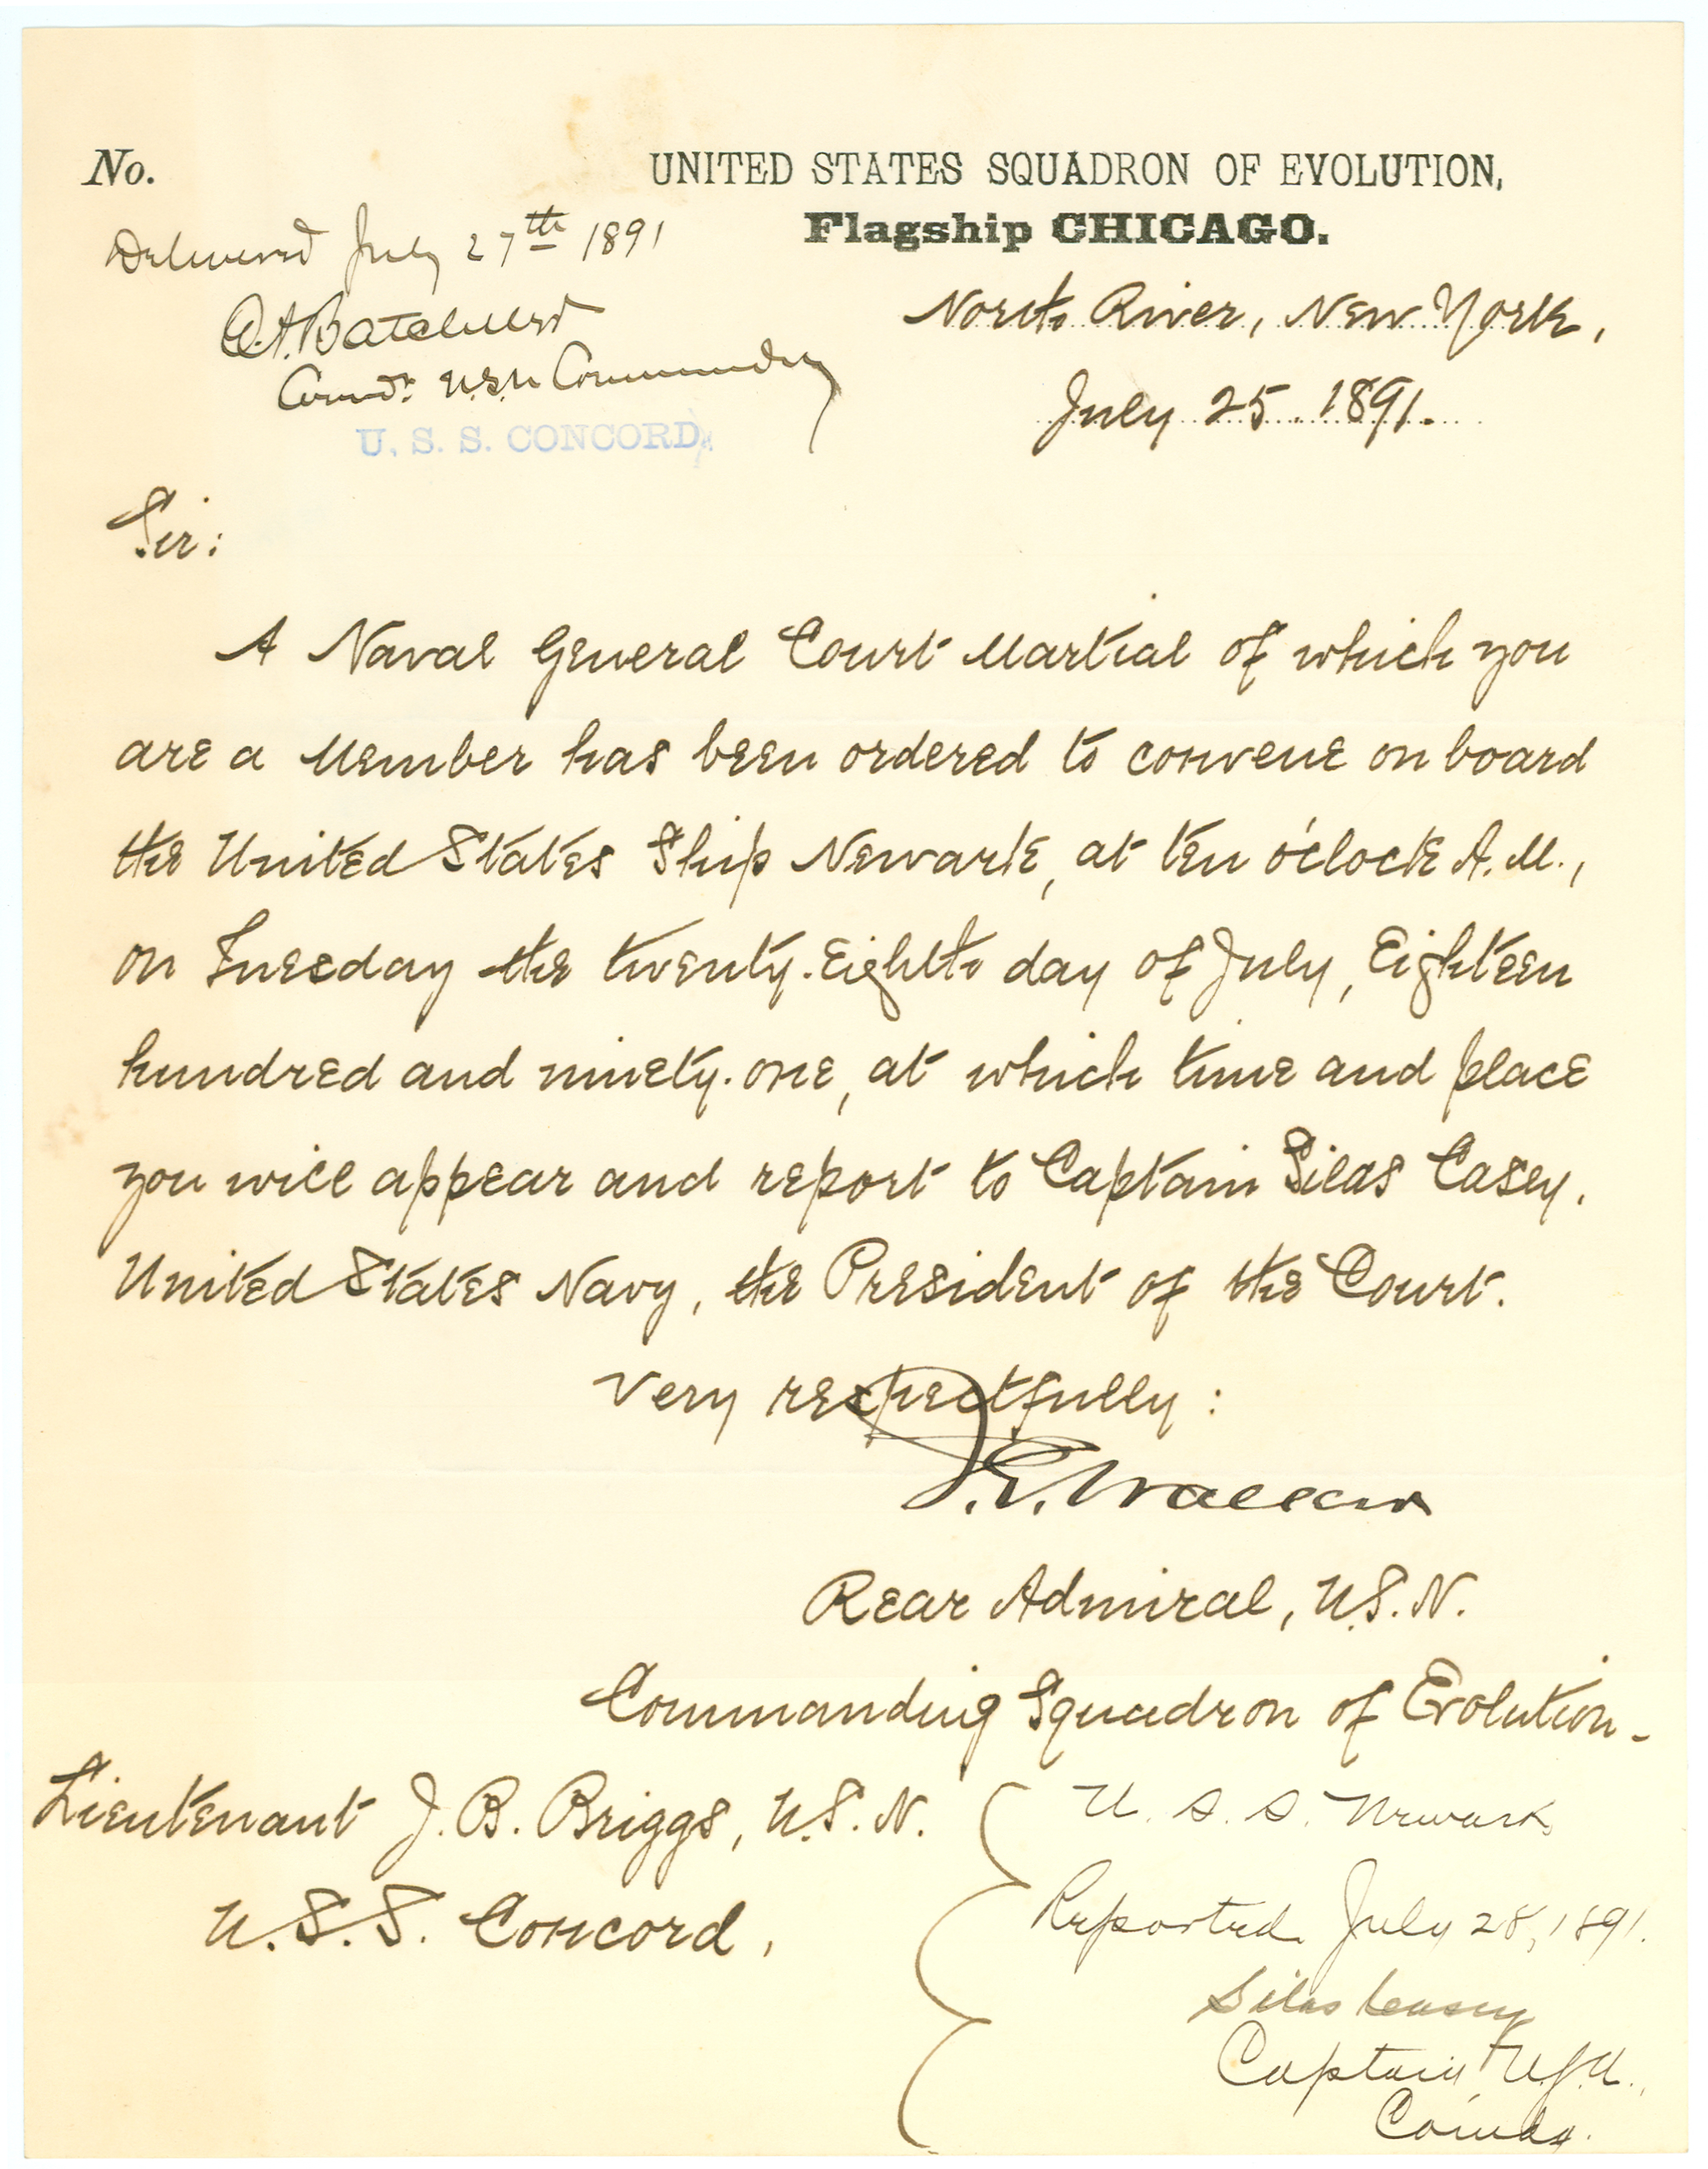 No.
UNITED STATES SQUADRON OF EVOLUTION,
Flagship CHICAGO.
Delivered July 27th 1891
North River, New York,
O.A. Batcheller
Comdr. U.S.N Commanding
July 25. 1891.
U. S. S. CONCORD,
Sir:
A Naval General Court Martial of which you
are a Member has been ordered to convene on board
the United States Ship Newark, at ten o'clock A.M.,
on Tuesday the twenty-eighth day of July, Eighteen
hundred and ninety-one, at which time and place
you will appear and report to Captain Silas Casey,
United States Navy, the President of the Court.
Very respectfully:
J.G. Walker
Rear Admiral, U.S.N.
Commanding Squadron of Evolution.
Lieutenant J. B. Briggs, U.S.N.
U.S.S. Concord,
U. S. S. Newark
Reported July 28, 1891.
Silas Casey
Captain U.S.N.,
Comdg.